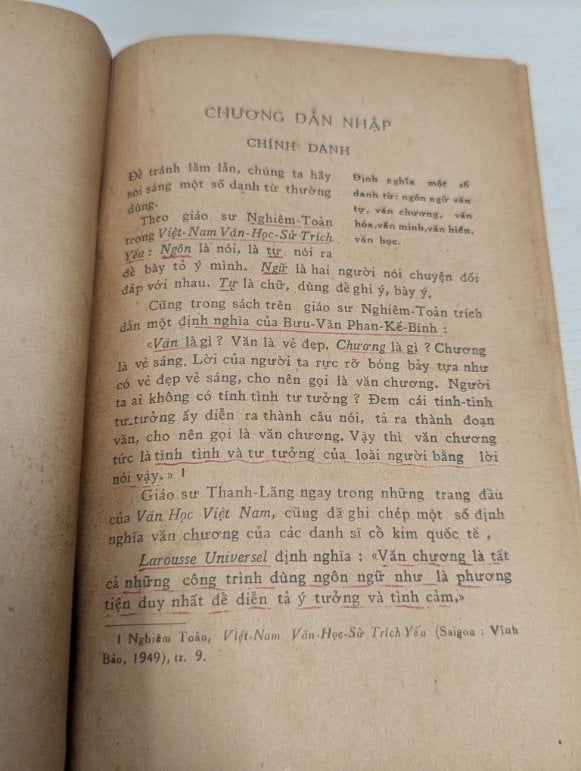 CHƯƠNG DẪN NHẬP
CHÍNH DANH
Để tránh lầm lẫn, chúng ta hãy
soi sáng một số danh từ thường
dùng.
Định nghĩa một số
danh từ: ngôn ngữ văn
tự, văn chương, văn
hóa, văn minh, văn hiến,
văn học.
Theo giáo sư Nghiêm-Toản
trong Việt-Nam Văn-Học-Sử Trích
Yếu : Ngôn là nói, là tự nói ra
để bày tỏ ý mình. Ngữ là hai người nói chuyện đối
đáp với nhau. Tự là chữ, dùng để ghi ý, bày ý.
Cũng trong sách trên giáo sư Nghiêm-Toản trích
dẫn một định nghĩa của Bưu-Văn Phan-Kế-Bính :
«Văn là gì ? Văn là vẻ đẹp. Chương là gì ? Chương
là vẻ sáng. Lời của người ta rực rỡ bóng bảy tựa như
có vẻ đẹp vẻ sáng, cho nên gọi là văn chương. Người
ta ai không có tính tình tư tưởng ? Đem cái tính-tình
tư-tưởng ấy diễn ra thành câu nói, tả ra thành đoạn
văn, cho nên gọi là văn chương. Vậy thì văn chương
tức là tính tình và tư tưởng của loài người bằng lời
nói vậy.» 1
Giáo sư Thanh-Lãng ngay trong những trang đầu
của Văn Học Việt Nam, cũng đã ghi chép một số định
nghĩa văn chương của các danh sĩ cổ kim quốc tế ,
Larousse Universel định nghĩa : «Văn chương là tất
cả những công trình dùng ngôn ngữ như là phương
tiện duy nhất để diễn tả ý tưởng và tình cảm.»
1 Nghiêm Toản, Việt-Nam Văn-Học-Sử Trích Yếu (Saigon : Vĩnh
Bảo, 1949), tr. 9.